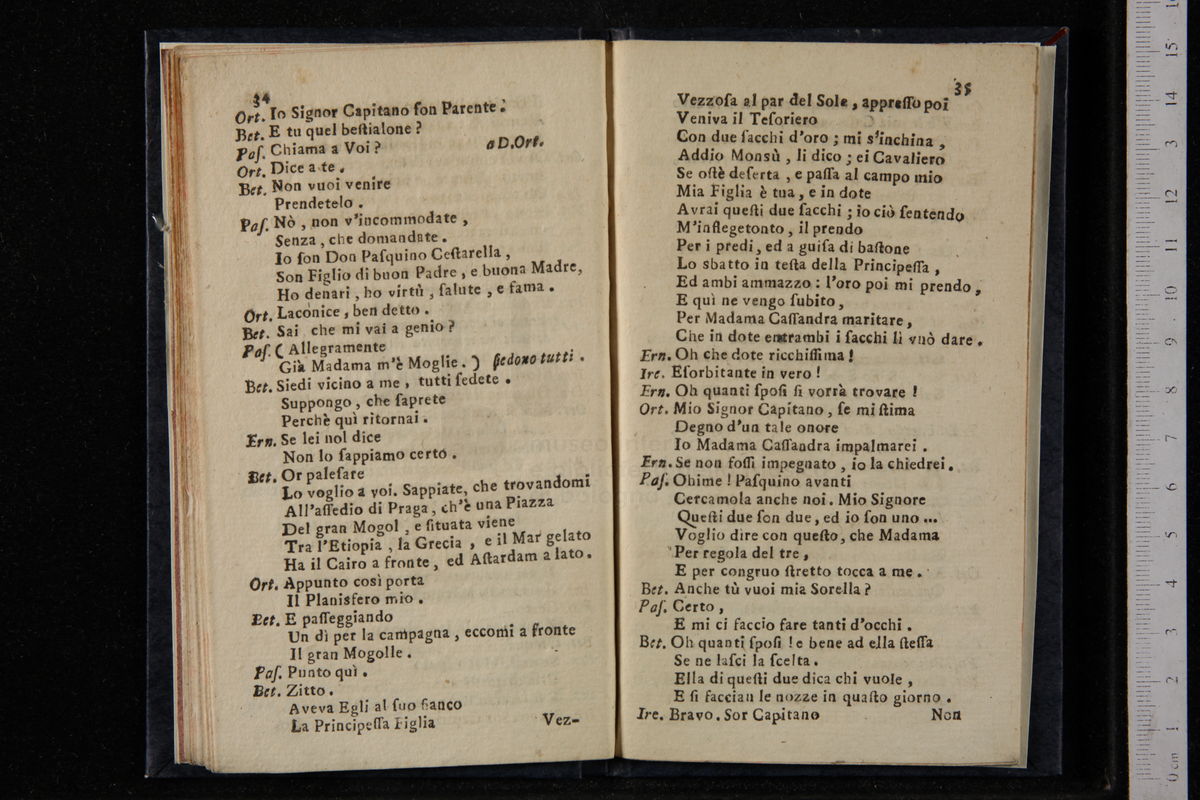 34
Ort. Io Signor Capitano ſon Parente.
Bet. E tu quel beſtialone?
Paſ. Chiama a Voi? a D.Ort.
Ort. Dice a te.
Bet. Non vuoi venire
Prendetelo.
Paſ. Nò, non v'incommodate,
Senza, che domandate.
Io ſon Don Paſquino Ceſtarella,
Son Figlio di buon Padre, e buona Madre,
Ho denari, ho virtù, ſalute, e fama.
Ort. Laconice, ben detto.
Bet. Sai che mi vai a genio?
Paſ. ( Allegramente
Già Madama m'è Moglie. ) ſiedono tutti.
Bet. Siedi vicino a me, tutti ſedete.
Suppongo, che ſaprete
Perchè quì ritornai.
Ern. Se lei nol dice
Non lo ſappiamo certo.
Bet. Or paleſare
Lo voglio a voi. Sappiate, che trovandomi
All'aſſedio di Praga, ch'è una Piazza
Del gran Mogol, e ſituata viene
Tra l'Etiopia, la Grecia, e il Mar gelato
Ha il Cairo a fronte, ed Aſtardam a lato.
Ort. Appunto così porta
Il Planisfero mio.
Bet. E paſſeggiando
Un dì per la campagna, eccomi a fronte
Il gran Mogolle.
Paſ. Punto quì.
Bet. Zitto.
Aveva Egli al ſuo fianco
La Principeſſa Figlia
Vez-
35
Vezzoſa al par del Sole, appreſſo poi
Veniva il Teſoriero
Con due ſacchi d'oro; mi s'inchina,
Addio Monsù, li dico; ei Cavaliero
Se oſtè deſerta, e paſſa al campo mio
Mia Figlia è tua, e in dote
Avrai queſti due ſacchi; io ciò ſentendo
M'inflegetonto, il prendo
Per i predi, ed a guiſa di baſtone
Lo sbatto in teſta della Principeſſa,
Ed ambi ammazzo: l'oro poi mi prendo,
E quì ne vengo ſubito,
Per Madama Caſſandra maritare,
Che in dote entrambi i ſacchi li vuò dare.
Ern. Oh che dote ricchiſſima!
Ire. Eſorbitante in vero!
Ern. Oh quanti ſpoſi ſi vorrà trovare!
Ort. Mio Signor Capitano, ſe mi ſtima
Degno d'un tale onore
Io Madama Caſſandra impalmarei.
Ern. Se non foſſi impegnato, io la chiedrei.
Paſ. Ohime! Paſquino avanti
Cercamola anche noi. Mio Signore
Queſti due ſon due, ed io ſon uno ...
Voglio dire con queſto, che Madama
Per regola del tre,
E per congruo ſtretto tocca a me.
Bet. Anche tù vuoi mia Sorella?
Paſ. Certo,
E mi ci faccio fare tanti d'occhi.
Bet. Oh quanti ſpoſi! e bene ad ella ſteſſa
Se ne laſci la ſcelta.
Ella di queſti due dica chi vuole,
E ſi faccian le nozze in quaſto giorno.
Ire. Bravo. Sor Capitano
Non